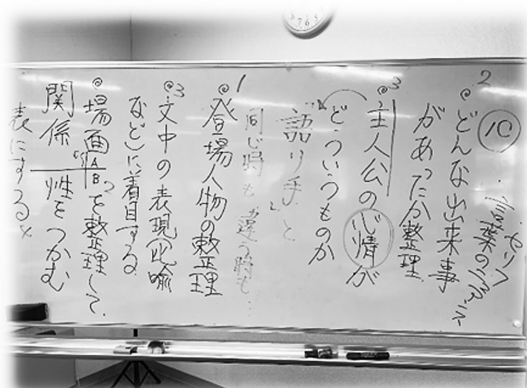 2
⑩
・言葉のニュアンス
セリフ
◎どんな出来事
があったか整理
3
◎主人公の心情が
どういうものか
語り手と
同じ時も違う時も…
1
◎登場人物の整理
3
◎文中の表現(比喩
など)に着目する
◎場面を整理して、
A
B
関係性をつかむ
表にする